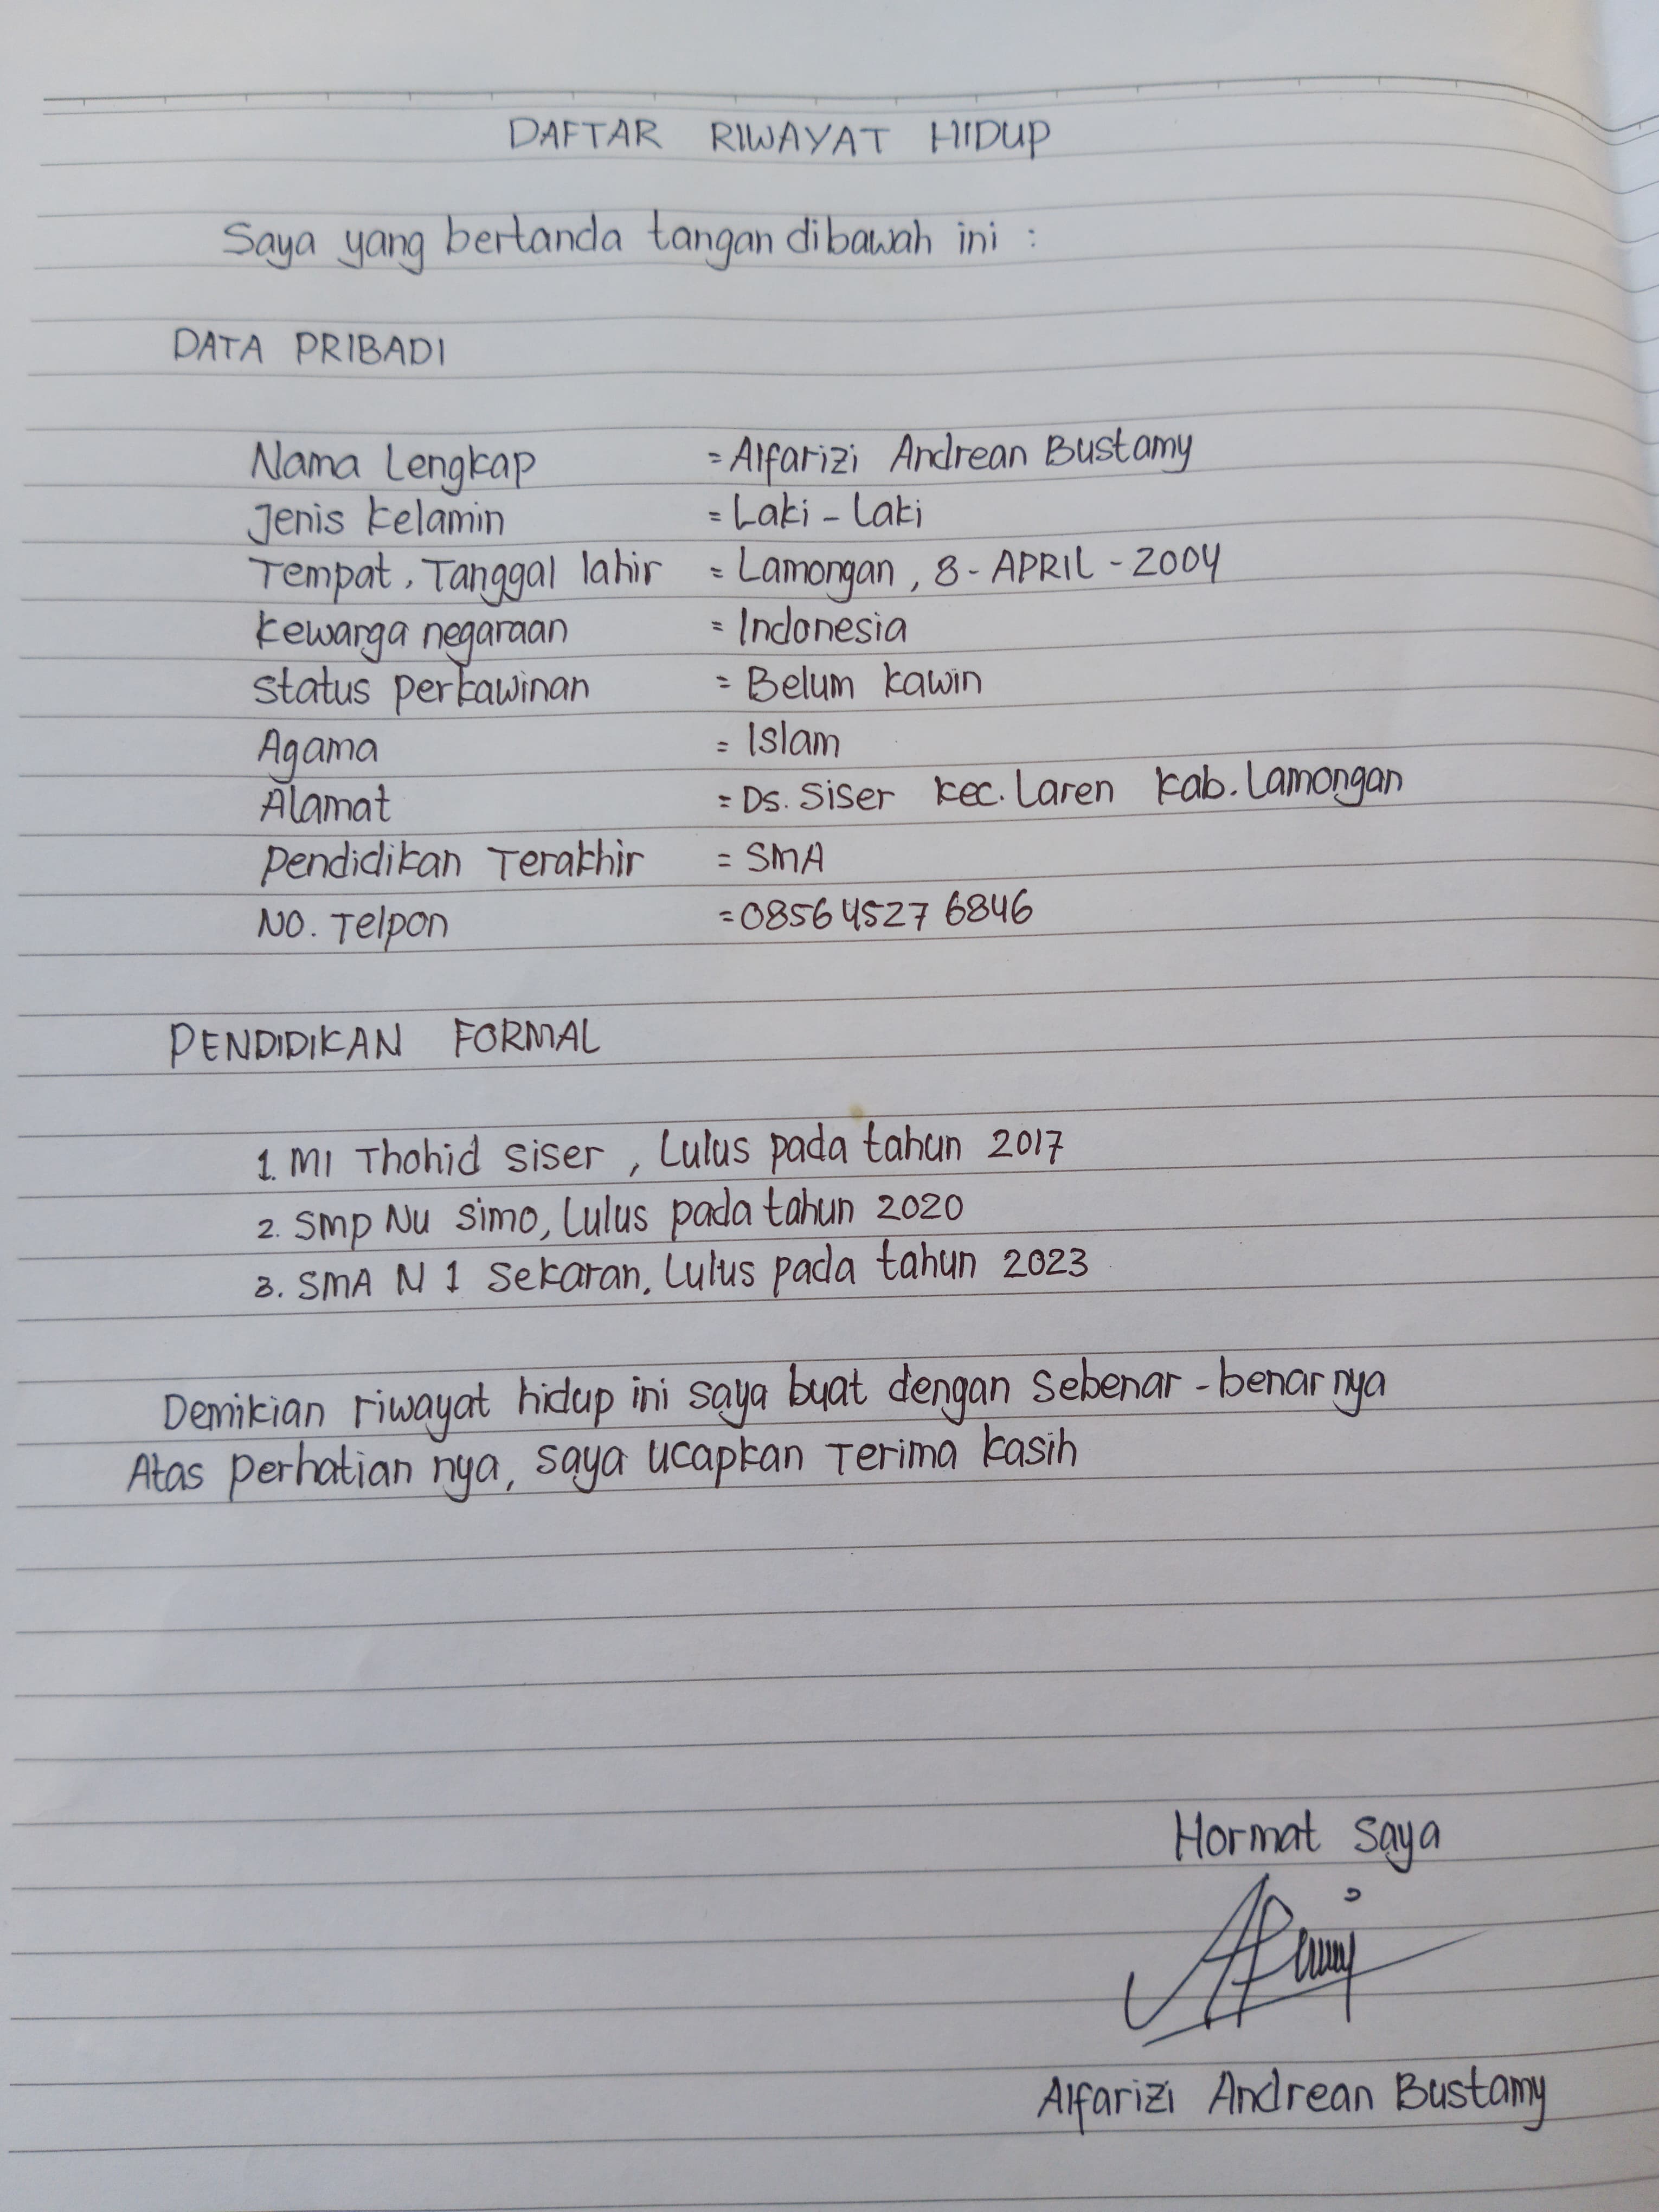 DAFTAR RIWAYAT HIDUP
Saya yang bertanda tangan dibawah ini :
DATA PRIBADI
Nama Lengkap = Alfarizi Andrean Bustamy
Jenis kelamin = Laki - Laki
Tempat, Tanggal lahir = Lamongan, 8 - APRIL - 2004
kewarga negaraan = Indonesia
Status perkawinan = Belum kawin
Agama = Islam
Alamat = Ds. Siser kec. Laren kab. Lamongan
Pendidikan Terakhir = SMA
No. Telpon = 0856 4527 6846
PENDIDIKAN FORMAL
1. MI Thohid Siser, Lulus pada tahun 2017
2. Smp Nu Simo, Lulus pada tahun 2020
3. SMA N 1 Sekaran, Lulus pada tahun 2023
Demikian riwayat hidup ini saya buat dengan sebenar - benar nya
Atas perhatian nya, saya ucapkan Terima kasih
Hormat Saya
Alfarizi Andrean Bustamy